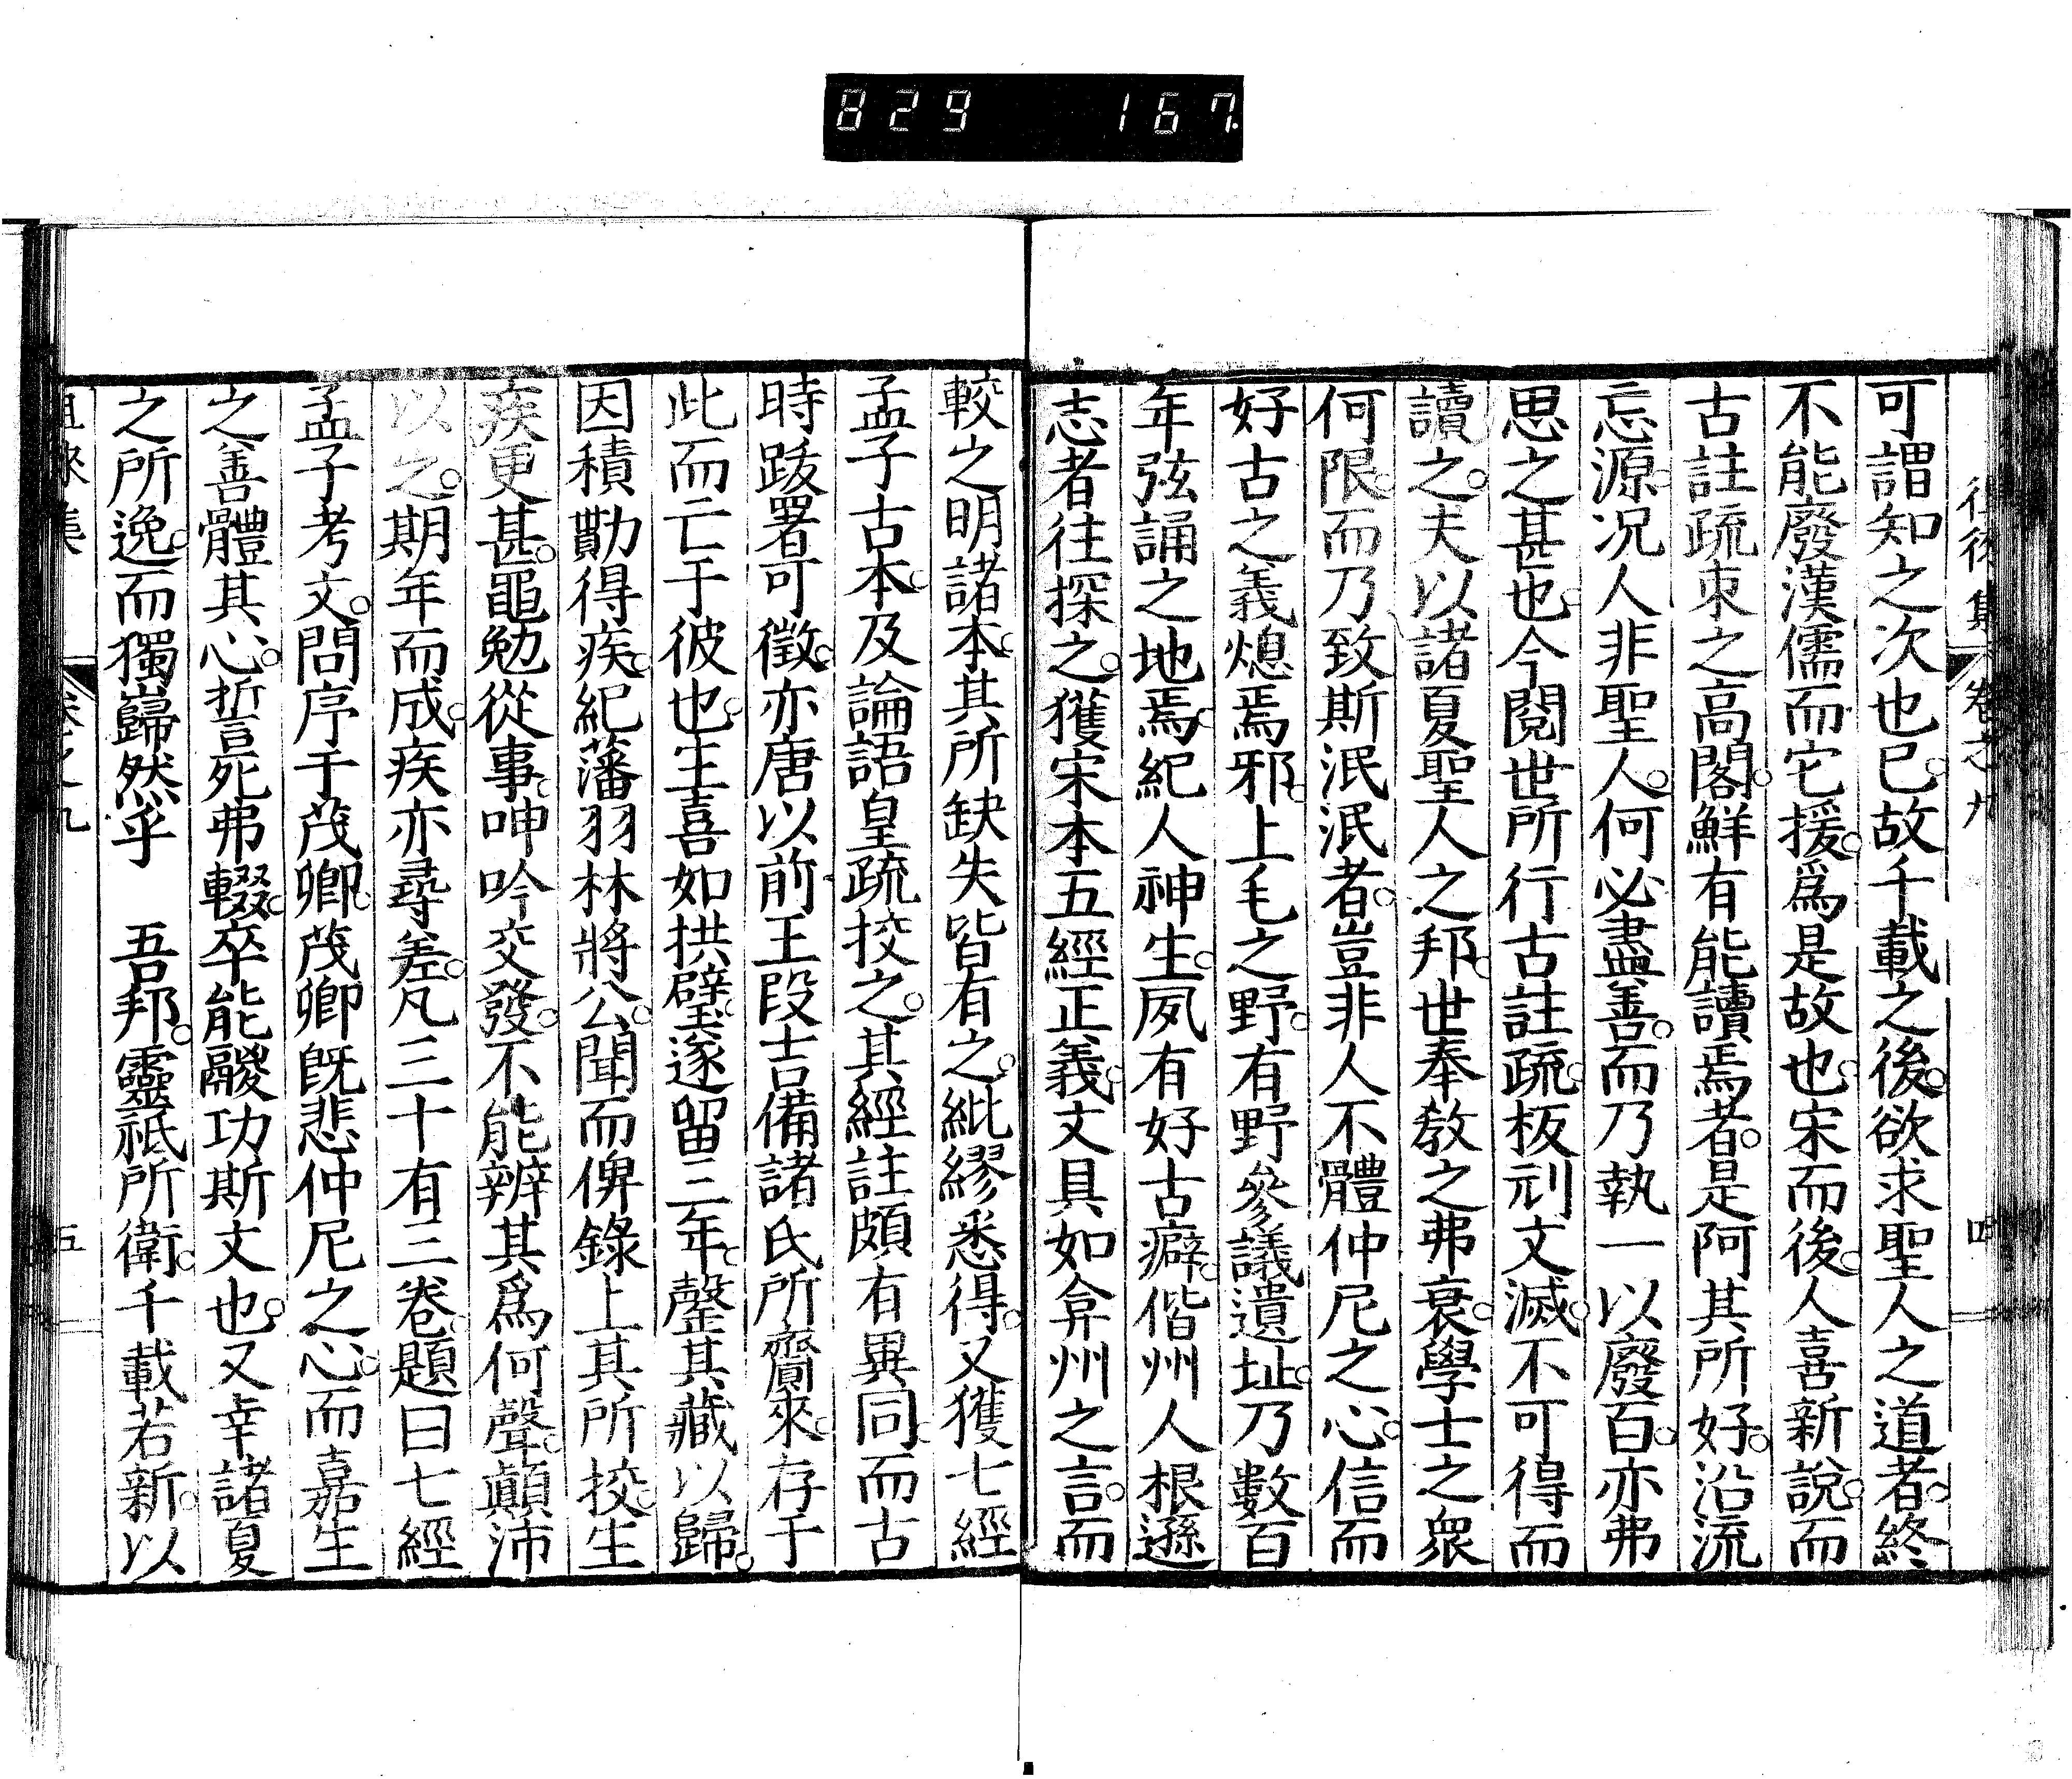 829 167.
可謂知之次也已。故千載之後。欲求聖人之道者。終
不能廢漢儒而它援。爲是故也。宋而後。人喜新說。而
古註疏朿之高閣。鮮有能讀焉者。是阿其所好。沿流
忘源。况人非聖人。何必盡善。而乃執一以廢百。亦弗
思之甚也。今閱世所行古註疏。板刓文滅。不可得而
讀之。夫以諸夏聖人之邦。世奉敎之弗衰。學士之衆
何限。而乃致斯泯泯者。豈非人不體仲尼之心。信而
好古之義熄焉邪。上毛之野。有野參議遺址。乃數百
年弦誦之地焉。紀人神生。夙有好古癖。偕州人根遜
志者往探之。獲宋本五經正義。文具如弇州之言。而
較之明諸本。其所缺失皆有之。紕繆悉得。又獲七經
孟子古本。及論語皇疏挍之。其經註頗有異同。而古
時跋署可徵。亦唐以前王段吉備諸氏所齎來。存于
此而亡于彼也。生喜如拱璧。遂留三年。罄其藏以歸。
因積勩得疾。紀藩羽林將公。聞而俾錄上其所挍。生
疾更甚。黽勉從事。呻吟交發。不能辨其爲何聲。顚沛
以之。期年而成。疾亦尋差。凡三十有三卷。題曰七經
孟子考文。問序于茂卿。茂卿旣悲仲尼之心。而嘉生
之善體其心。誓死弗輟。卒能鬷功斯文也。又幸諸夏
之所逸。而獨巋然乎 吾邦。靈祇所衛。千載若新。以
卷之九
四
五